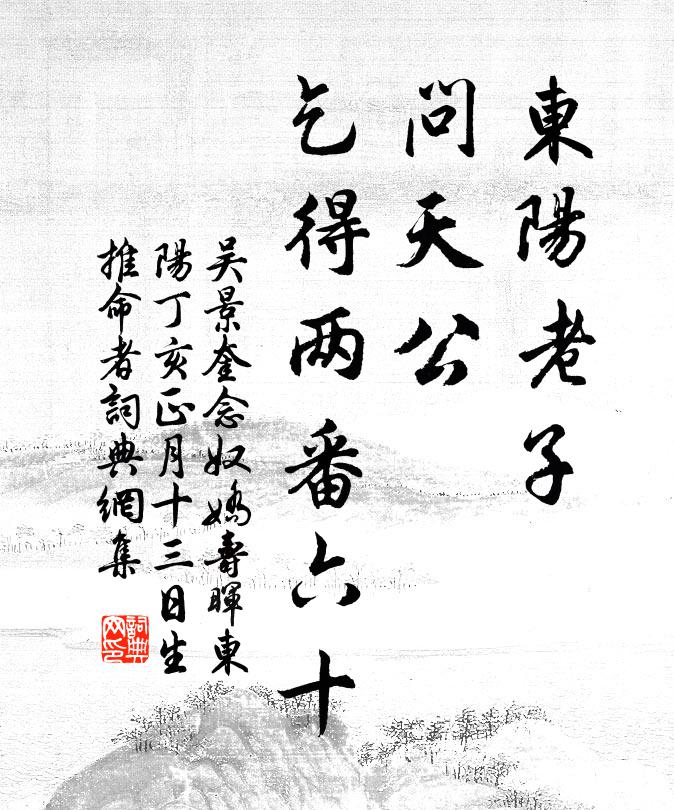 東陽老子
問天公
乞得两番六十
吴景奎念奴嬌壽暉東
陽丁亥正月十三日生
推命者詞典網集
詞典
网印